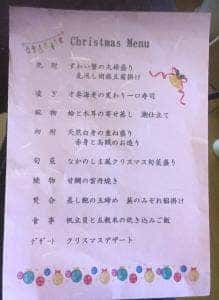 Christmas Menu
先附 ずわい蟹の大根盛り
凌ぎ 才巻海老の変わり一口寿司
椀物 蛤と木耳の寄せ蒸し 潮仕立て
向附 天然白身の重ね盛り
赤身と烏賊のお造り
旬菜 なかのしま風クリスマス旬菜盛り
焼物 甘鯛の雲丹焼き
焚合 蒸し鮑の玉締め 蕪のみぞれ餡掛け
食事 帆立貝と五穀米の炊き込みご飯
デザート クリスマスデザート